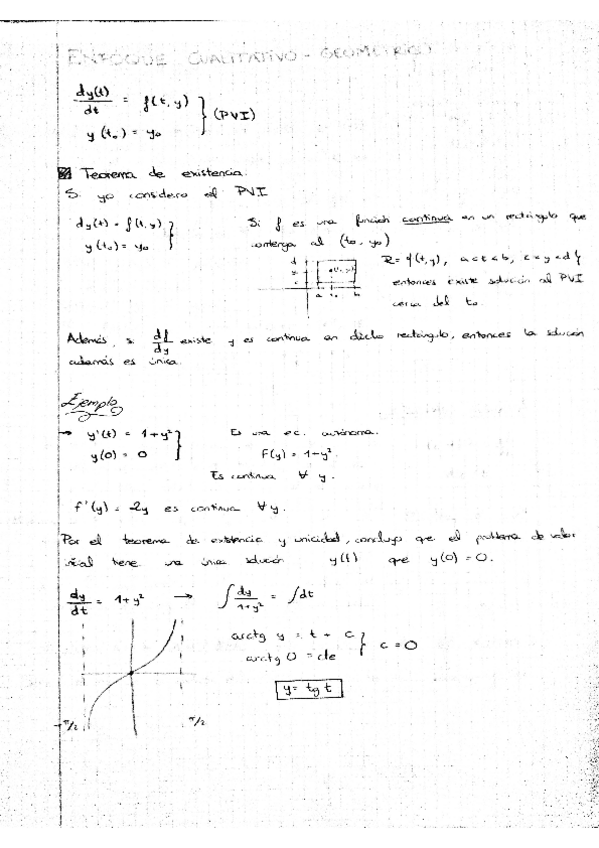 ENFOQUE CUALITATIVO - GEOMÉTRICO
dy(t)/dt = f(t, y) } (PVI)
y(t₀) = y₀
Teorema de existencia.
Si yo considero el PVI
dy(t) = f(t, y) }
y(t₀) = y₀
Si f es una función continua en un rectángulo que
contenga al (t₀, y₀)
d
c
a t₀ b
R = {(t, y), a < t < b, c < y < d}
entonces existe solución al PVI
cerca del t₀.
Además, si df/dy existe y es continua en dicho rectángulo, entonces la solución
además es única.
Ejemplo
→ y'(t) = 1 + y² }
y(0) = 0
Es una ec. autónoma.
F(y) = 1 + y².
Es continua ∀ y.
f'(y) = 2y es continua ∀ y.
Por el teorema de existencia y unicidad, concluyo que el problema de valor
inicial tiene una única solución y(t) que y(0) = 0.
dy/dt = 1 + y² → ∫ dy/1+y² = ∫dt
arctg y = t + C }
arctg 0 = cte
c = 0
y = tg t
-π/2
π/2